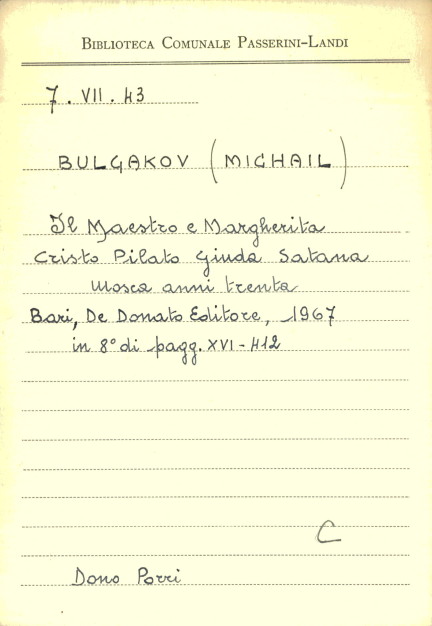 BIBLIOTECA COMUNALE PASSERINI-LANDI
7. VII. 43
BULGAKOV (MICHAIL)
Il Maestro e Margherita
Cristo Pilato Giuda Satana
Mosca anni trenta
Bari, De Donato Editore, 1967
in 8° di pagg. XVI-412
C
Dono Porri